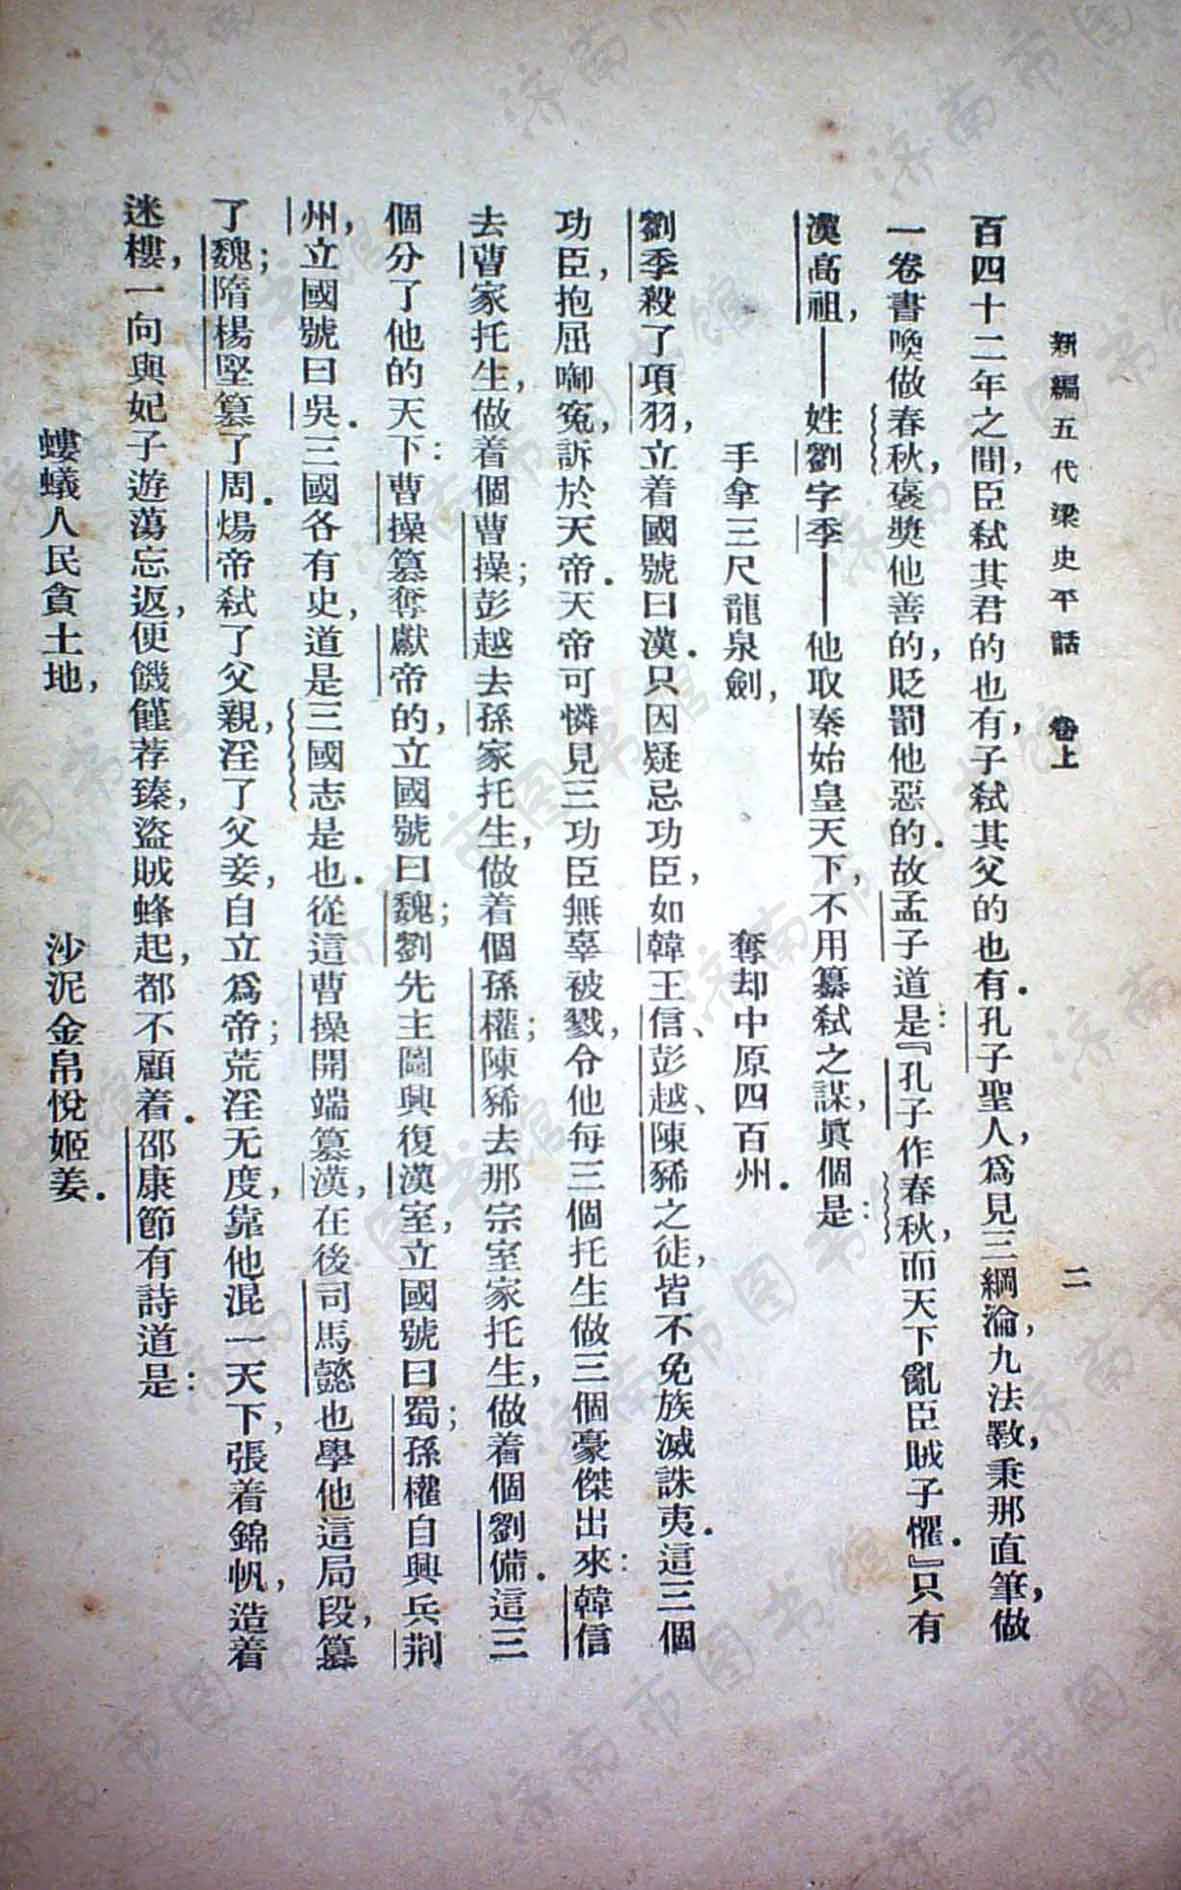 新編五代梁史平話　卷上　二
百四十二年之間，臣弒其君的也有，子弒其父的也有．孔子聖人，爲見三綱淪，九法斁，秉那直筆，做
一卷書喚做春秋，褒奬他善的，貶罰他惡的．故孟子道是：『孔子作春秋，而天下亂臣賊子懼．』只有
漢高祖，——姓劉字季——他取秦始皇天下，不用篡弒之謀，眞個是：
手拿三尺龍泉劍，　奪却中原四百州．
劉季殺了項羽，立着國號曰漢．只因疑忌功臣，如韓王信、彭越、陳豨之徒，皆不免族滅誅夷．這三個
功臣，抱屈啣寃，訴於天帝．天帝可憐見三功臣無辜被戮，令他每三個托生做三個豪傑出來：韓信
去曹家托生，做着個曹操；彭越去孫家托生，做着個孫權；陳豨去那宗室家托生，做着個劉備．這三
個分了他的天下：曹操篡奪獻帝的，立國號曰魏；劉先主圖興復漢室，立國號曰蜀；孫權自興兵荆
州，立國號曰吳．三國各有史，道是三國志是也．從這曹操開端篡漢，在後司馬懿也學他這局段，篡
了魏；隋楊堅篡了周．煬帝弒了父親，淫了父妾，自立爲帝；荒淫无度，靠他混一天下，張着錦帆，造着
迷樓，一向與妃子遊蕩忘返，便饑饉荐臻，盜賊蜂起，都不顧着．邵康節有詩道是：
螻蟻人民貪土地，　沙泥金帛悅姬姜．
济南市图书馆